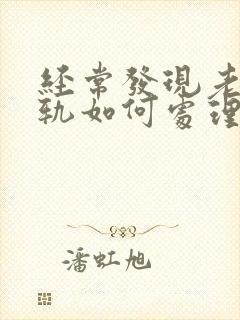 經常發現老
軌如何處理
潘虹旭